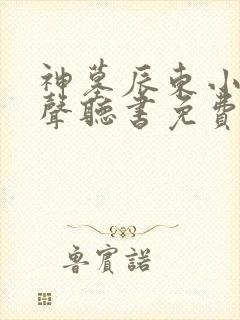 神墓辰東小
聲聽書免費
魯賓諾